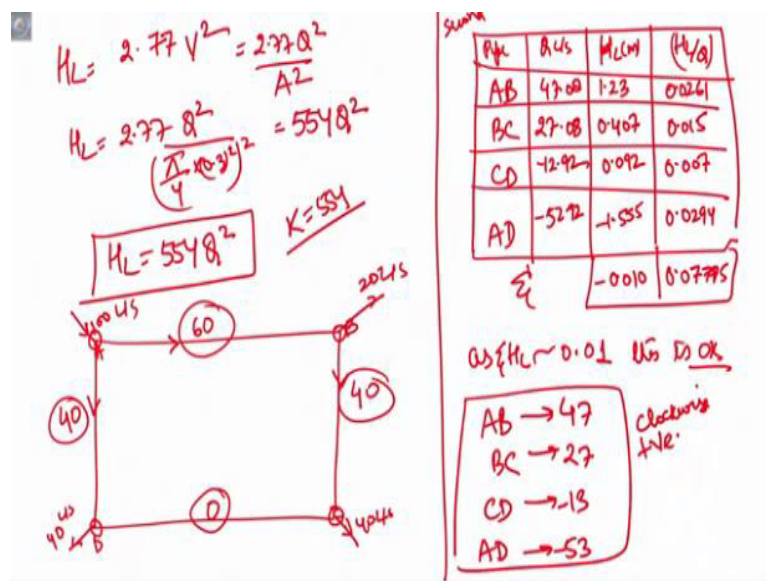 H_L = 2.77 V² = 2.77Q²/A²
H_L = 2.77 Q²/(π/4 ×(0.3)²)² = 554Q²
H_L = 554Q²
K=554
100 L/S
60
20 L/S
B
40
40
0
40 L/S
D
40 L/S
Pipe Q L/s H_L(m) (H_L/Q)
AB 47.08 1.23 0.0261
BC 27.08 0.407 0.015
CD -12.92 0.092 0.007
AD -52.92 -1.555 0.0294
Σ -0.010 0.07795
as ΣH_L ~ 0.01 this is OK
AB → 47
BC → 27
CD → -13
AD → -53
clockwise
+ve.